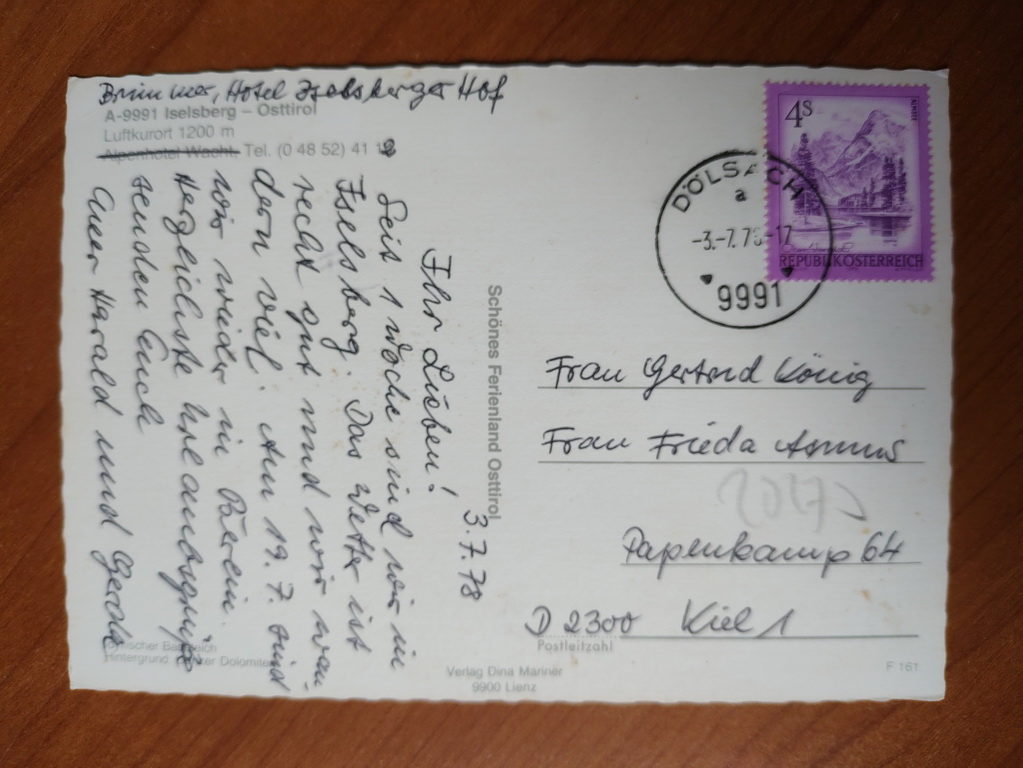 Brünner, Hotel Iselsberger Hof
A-9991 Iselsberg – Osttirol
Luftkurort 1200 m
Alpenhotel Wacht, Tel. (0 48 52) 41
3.7.78
Ihr Lieben!
Seit 1 Woche sind wir in
Iselsberg. Das Wetter ist
recht gut und wir wan-
dern viel. Am 19.7. sind
wir wieder in
Herzlichste Urlaubsgrüße
senden Euch
Euer Harald und Gerda
Schönes Ferienland Osttirol
Hintergrund Dolomiten
Verlag Dina Mariner
9900 Lienz
4S
REPUBLIK ÖSTERREICH
DÖLSACH
a
-3.-7.78-17
9991
Frau Gertrud König
Frau Frieda Asmus
Papenkamp 64
D 2300 Kiel 1
Postleitzahl
F 161